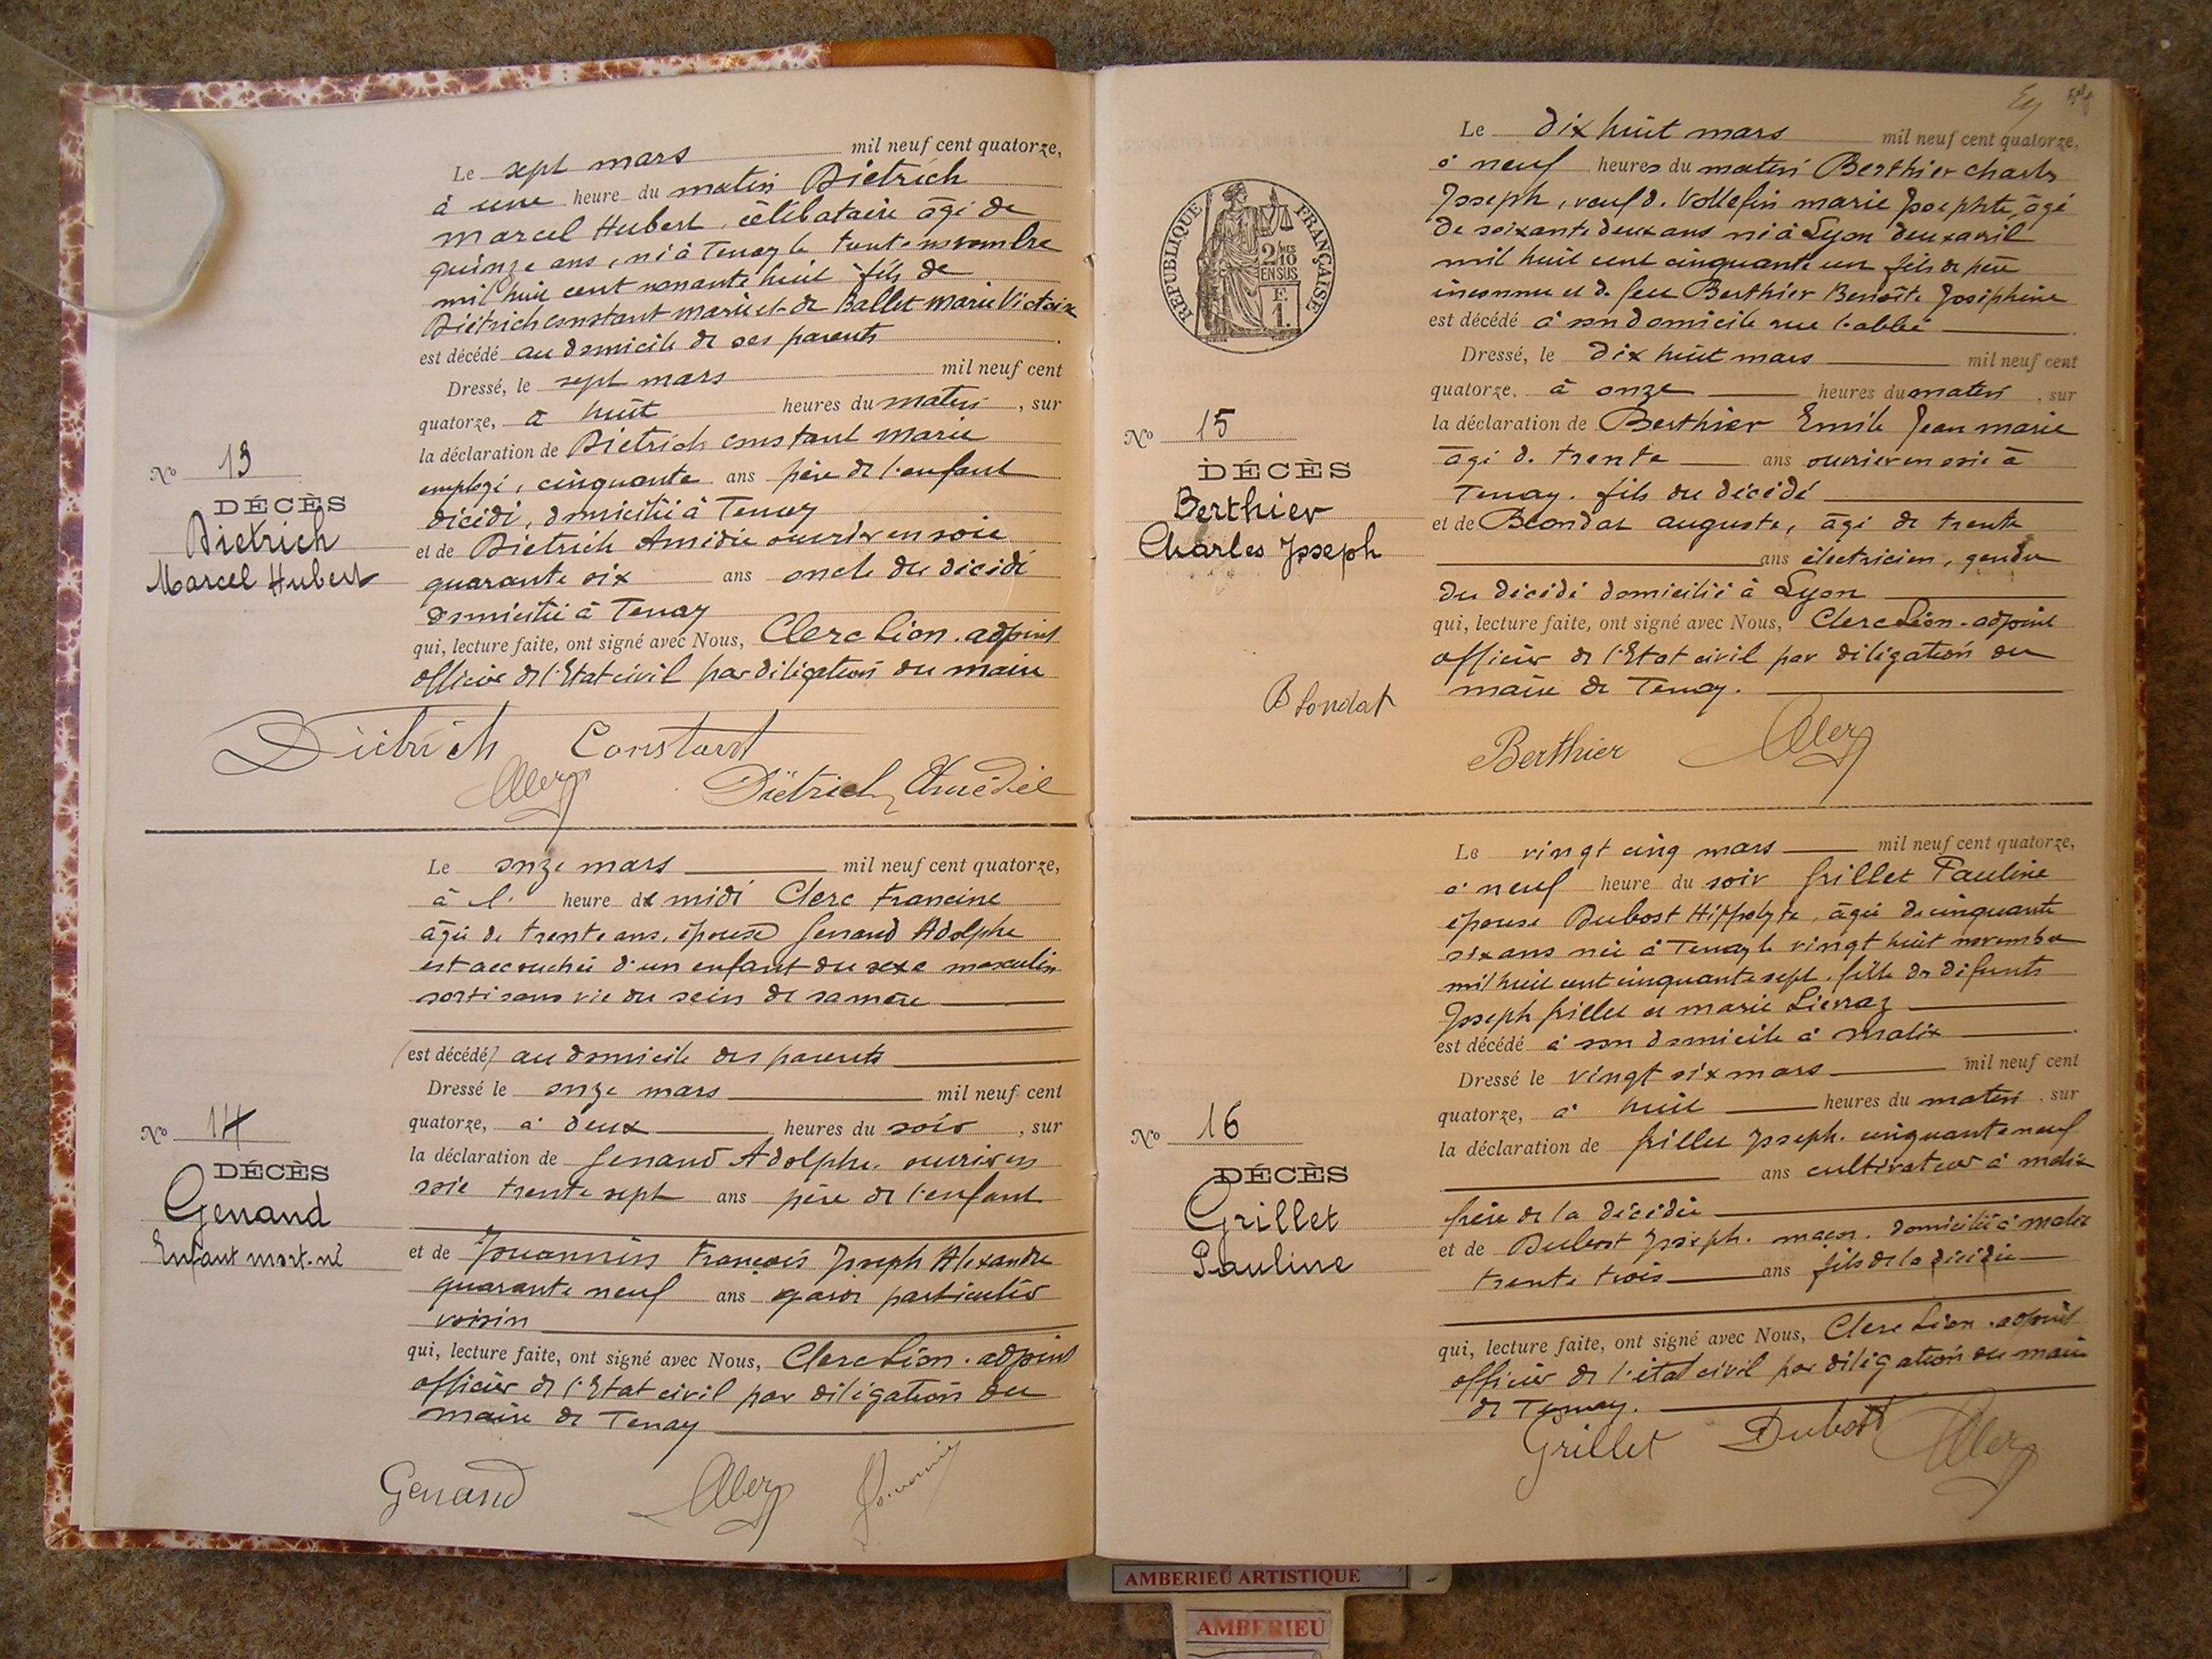 Le sept mars mil neuf cent quatorze,
à une heure du matin Dietrich
Marcel Hubert, célibataire âgé de
quinze ans, né à Tenay le trente novembre
mil huit cent nonante huit fils de
Dietrich Constant Marie et de Ballet Marie Victoire
est décédé au domicile de ses parents
Dressé, le sept mars mil neuf cent
quatorze, à huit heures du matin, sur
la déclaration de Dietrich Constant Marie
employé, cinquante ans père de l'enfant
décédé, domicilié à Tenay
et de Dietrich Amédée ouvrier en soie
quarante six ans oncle du décédé
domicilié à Tenay
qui, lecture faite, ont signé avec Nous, Clerc Léon. adjoint
officier de l'Etat civil par délégation du maire
No 13
DÉCÈS
Dietrich
Marcel Hubert
Dietrich Constant
Clerc
Dietrich Amédée
Le onze mars mil neuf cent quatorze,
à l' heure de midi Clerc Francine
âgée de trente ans, épouse Genand Adolphe
est accouchée d'un enfant du sexe masculin
sorti sans vie du sein de sa mère
(est décédé) au domicile des parents
Dressé le onze mars mil neuf cent
quatorze, à deux heures du soir, sur
la déclaration de Genand Adolphe. ouvrier en
soie trente sept ans père de l'enfant
et de Jouannin François Joseph Alexandre
quarante neuf ans garde particulier
voisin
qui, lecture faite, ont signé avec Nous, Clerc Léon. adjoint
officier de l'Etat civil par délégation du
maire de Tenay
No 14
DÉCÈS
Genand
Enfant mort-né
Genand Clerc
Le dix huit mars mil neuf cent quatorze,
à neuf heures du matin Berthier Charles
Joseph, veuf de Vollefin Marie Josephte, âgé
de soixante deux ans né à Lyon deux avril
mil huit cent cinquante un fils de père
inconnu et de feu Berthier Benoîte Joséphine
est décédé à son domicile rue l'abbé
Dressé, le dix huit mars mil neuf cent
quatorze, à onze heures du matin, sur
la déclaration de Berthier Emile Jean Marie
âgé de trente ans ouvrier en soie à
Tenay. fils du décédé
et de Blondat Auguste, âgé de trente
ans électricien, gendre
du décédé domicilié à Lyon
qui, lecture faite, ont signé avec Nous, Clerc Léon. adjoint
officier de l'Etat civil par délégation du
maire de Tenay.
RÉPUBLIQUE FRANÇAISE
2/10 MES
EN SUS
F.
1.
No 15
DÉCÈS
Berthier
Charles Joseph
Blondat
Berthier Clerc
Le vingt cinq mars mil neuf cent quatorze,
à neuf heure du soir Grillet Pauline
épouse Dubost Hippolyte, âgée de cinquante
six ans née à Tenay le vingt huit novembre
mil huit cent cinquante sept. fille de défunts
Joseph Grillet et Marie Liévraz
est décédé à son domicile à Malix
Dressé le vingt six mars mil neuf cent
quatorze, à huit heures du matin, sur
la déclaration de Grillet Joseph. cinquante neuf
ans cultivateur à Malix
frère de la décédée
et de Dubost Joseph. maçon. domicilié à Malix
trente trois ans fils de la décédée
qui, lecture faite, ont signé avec Nous, Clerc Léon. adjoint
officier de l'état civil par délégation du maire
de Tenay.
No 16
DÉCÈS
Grillet
Pauline
Grillet Dubost Clerc
AMBERIEU ARTISTIQUE
AMBERIEU